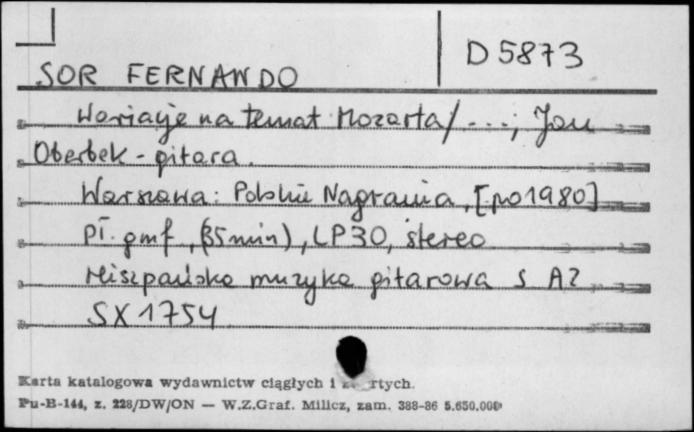 D 5873
SOR FERNANDO
Wariacje na temat Mozarta/ ...; Jan
Oberbek - gitara.
Warszawa: Polskie Nagrania, [po 1980]
Pł. gmf., (35 min), LP30, stereo
Hiszpańska muzyka gitarowa S. A2
SX 1754
Karta katalogowa wydawnictw ciągłych i
Pu-B-144, z. 228/DW/ON — W.Z.Graf. Milicz, zam. 388-86 5.650.000